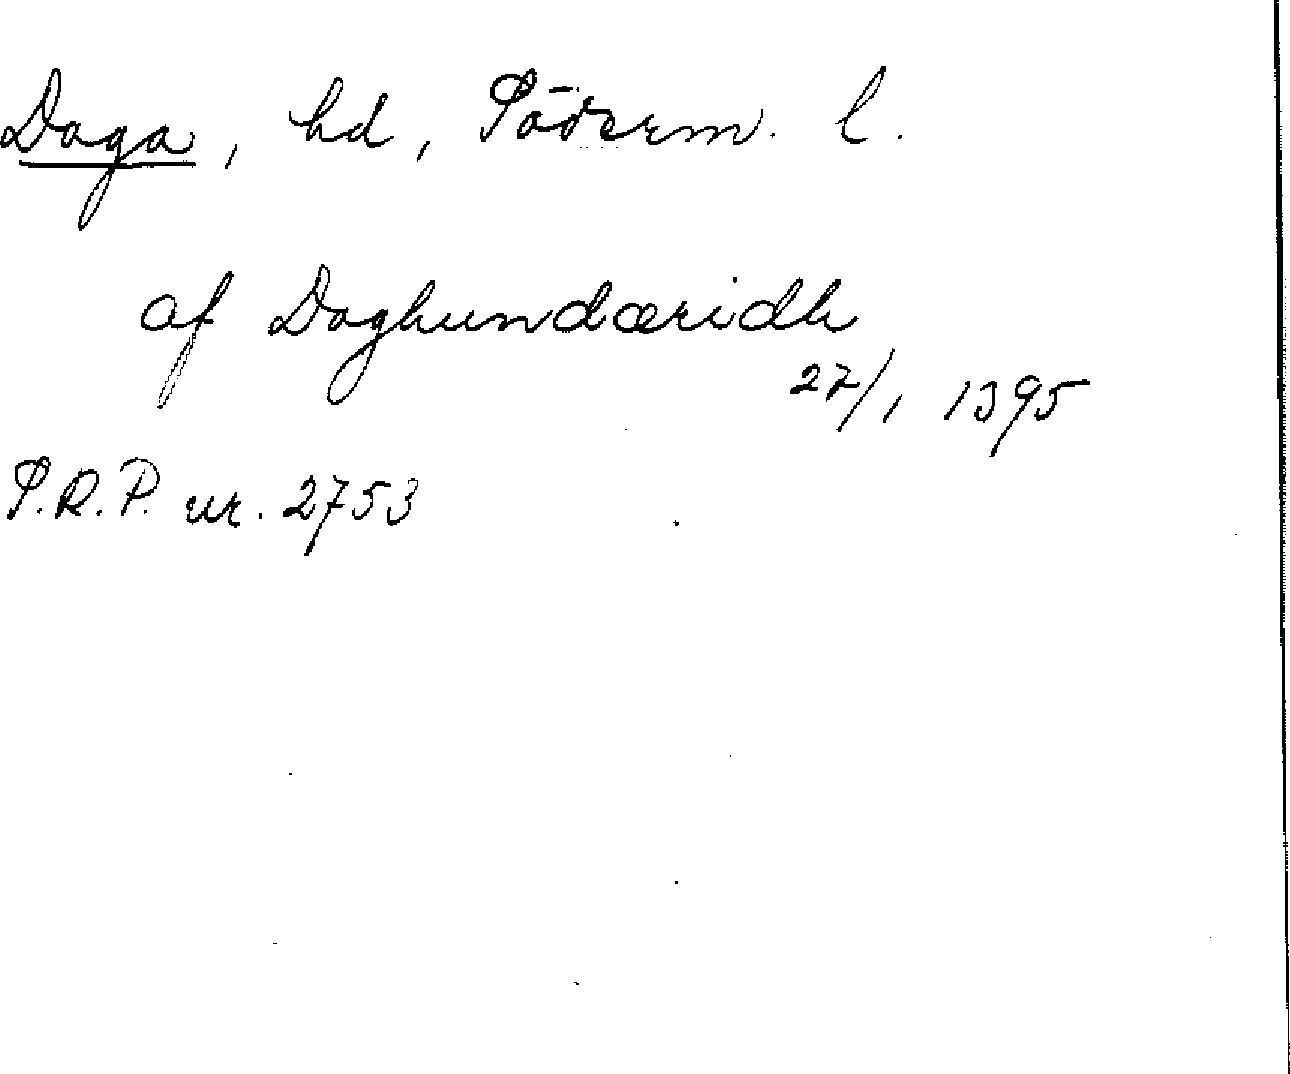 Daga, hd, Söderm. l.
af Daghundæridh
27/1 1395
S.R.P. nr. 2753